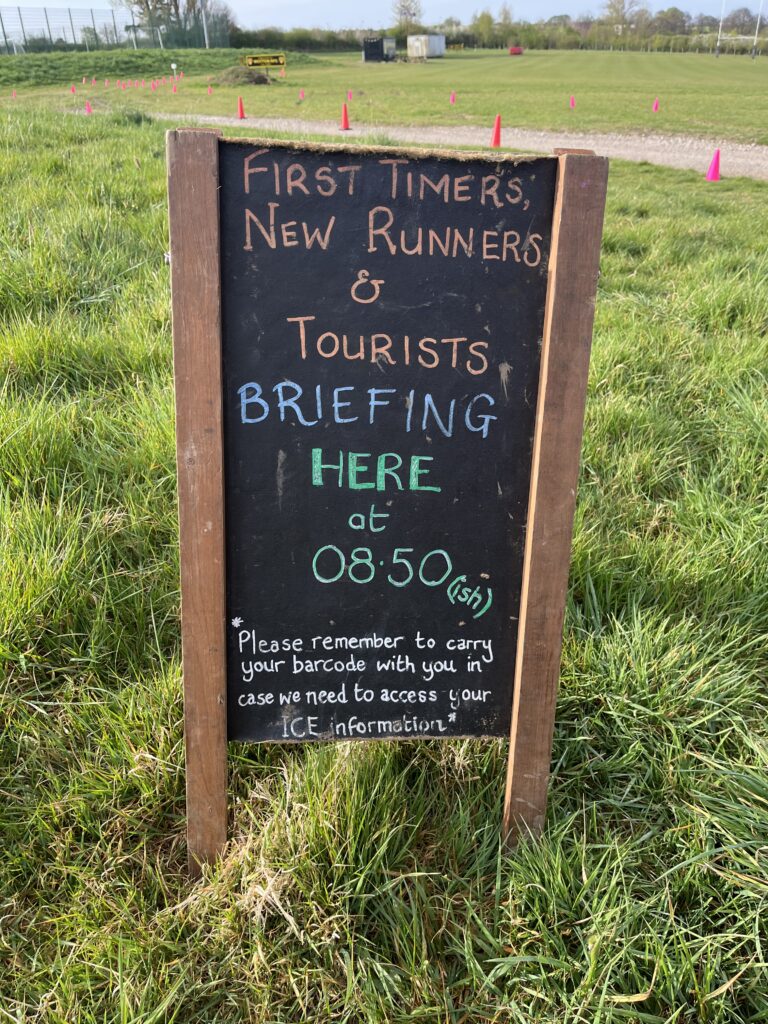 First Timers,
New Runners
&
Tourists
Briefing
HERE
at
08.50(ish)
*Please remember to carry
your barcode with you in
case we need to access your
ICE information*